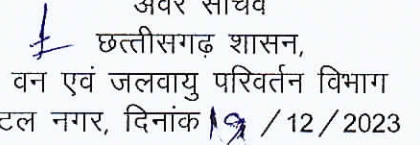 अवर सचिव
छत्तीसगढ़ शासन,
वन एवं जलवायु परिवर्तन विभाग
टल नगर, दिनांक 19 /12/2023